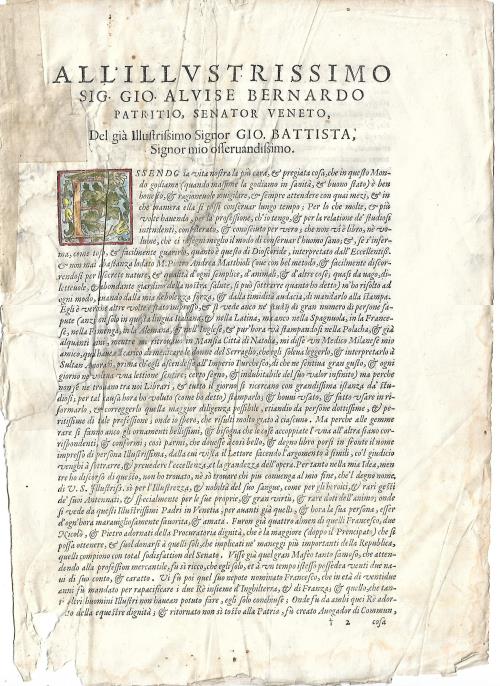 ALL'ILLVSTRISSIMO
SIG. GIO. ALVISE BERNARDO
PATRITIO, SENATOR VENETO,
Del già Illustrissimo Signor GIO. BATTISTA,
Signor mio osseruandissimo.
ESSENDO la vita nostra la più cara, & pregiata cosa, che in questo Mon-
do godiamo (quando massime la godiamo in sanità, & buono stato) è ben
honesto, & ragioneuole inuigilare, & sempre attendere con quai mezi, & in
che maniera ella si possi conseruar lungo tempo; Per il che molte, & più
volte hauendo, per la professione, ch'io tengo, & per la relatione de' studiosi
intendenti, considerato, & conosciuto per vero; che non v'è libro, nè vo-
lume, che ci insegni meglio il modo di conseruar l'huomo sano; &, se s'infer-
ma, come tosto, & facilmente guarirlo, quanto è questo di Dioscoride, interpretato dall'Eccellentiss.
& non mai à bastanza lodato M. Pietro Andrea Matthioli (oue con bel metodo, & facilmente discor-
rendosi per le secrete nature, & qualità d'ogni semplice, d'animali, & d'altre cose; quasi da vago, di-
letteuole, & abondante giardino della nostra salute, si può sottrarre quanto hò detto) m'hò risolto ad
ogni modo, quando dalla mia debolezza forza, & dalla timidità audacia, di mandarlo alla stampa.
Egli è vero che altre volte è stato impresso, & si vede anco in più di gran numero di persone sa-
pute (anzi non solo in questa lingua Italiana, & nella Latina, mà anco nella Spagnuola, in la France-
se, nella Fiamenga, in la Alemana, & nell'Inglese, & pur'hora và stampandosi nella Polacha, & già
alquanti anni, mentre mi ritrouauo in Manissa Città di Natolia, mi disse vn Medico Milanese mio
amico, qual hauea il carico di medicare le donne del Serraglio, che egli soleua leggerlo, & interpretarlo à
Sultan Amorath, prima ch'egli ascendesse all'Imperio Turchesco, che ne sentiua gran gusto, & ogni
giorno ne voleua vna lettione sentire; certo segno, & indubitabile del suo valor infinito) ma perche
non se ne trouano trà noi Librari, & tutto il giorno si ricercano con grandissima istanza da' stu-
diosi; per tal causa hora hò voluto (come hò detto) stamparlo; & honui vsato, & fatto vsare in ri-
formarlo, & correggerlo quella maggior diligenza possibile, etiandio da persone dottissime, & pe-
ritissime di tale professione; onde io spero, che risulti molto grato à ciascuno. Ma perche alle gemme
rare si fanno anco gli ornamenti bellissimi, & bisogna che le cose accoppiate l'vna all'altra siano cor-
rispondenti, & conformi; così parmi, che douesse à così bello, & degno libro porsi in fronte il nome
impresso di persona Illustrissima, dalla cui vista il Lettore facendo l'argomento à simili, co'l giudicio
venghi à sottrarre, & preuedere l'eccellenza, et la grandezza dell'opera. Per tanto nella mia Idea, men-
tre hò discorso di questo, non hò trouato, nè sò trouare chi più conuenga al mio fine, che'l degno nome,
di V. S. Illustriss. sì per l'Illustrezza, & nobiltà del suo sangue, come per gli heroici, & rari gesti
de' suoi Antenati, & specialmente per le sue proprie, & gran virtù, & rare doti dell'animo; onde
si vede da questi Illustrissimi Padri in Venetia, per auanti già quelli, & hora la sua persona, esser
d'ogn'hora marauigliosamente fauorita, & amata. Furon già quattro almen di quelli Francesco, due
Nicolò, & Pietro adornati della Procuratoria dignità, che è la maggiore (doppo il Prencipato) che si
possa ottenere, & suol donarsi à quelli soli, che implicati ne' maneggi più importanti della Republica,
quelli compiono con total sodisfattion del Senato. Visse già quel gran Maffio tanto famoso, che atten-
dendo alla profession mercantile, fu sì ricco, che egli solo, et à vn tempo istesso possedea venti due na-
ui di suo conto, & caratto. Vi fu poi quel suo nepote nominato Francesco, che in età di ventidue
anni fu mandato per rapacificare i due Rè insieme d'Inghilterra, & di Franza; & quello, che tan-
ti altri huomini Illustri non haueau potuto fare, egli solo conchiuse; Onde fu da ambi quei Rè ador-
nato della equestre dignità; & ritornato non sì tosto alla Patria, fu creato Auogador di Commun,
† 2 cosa